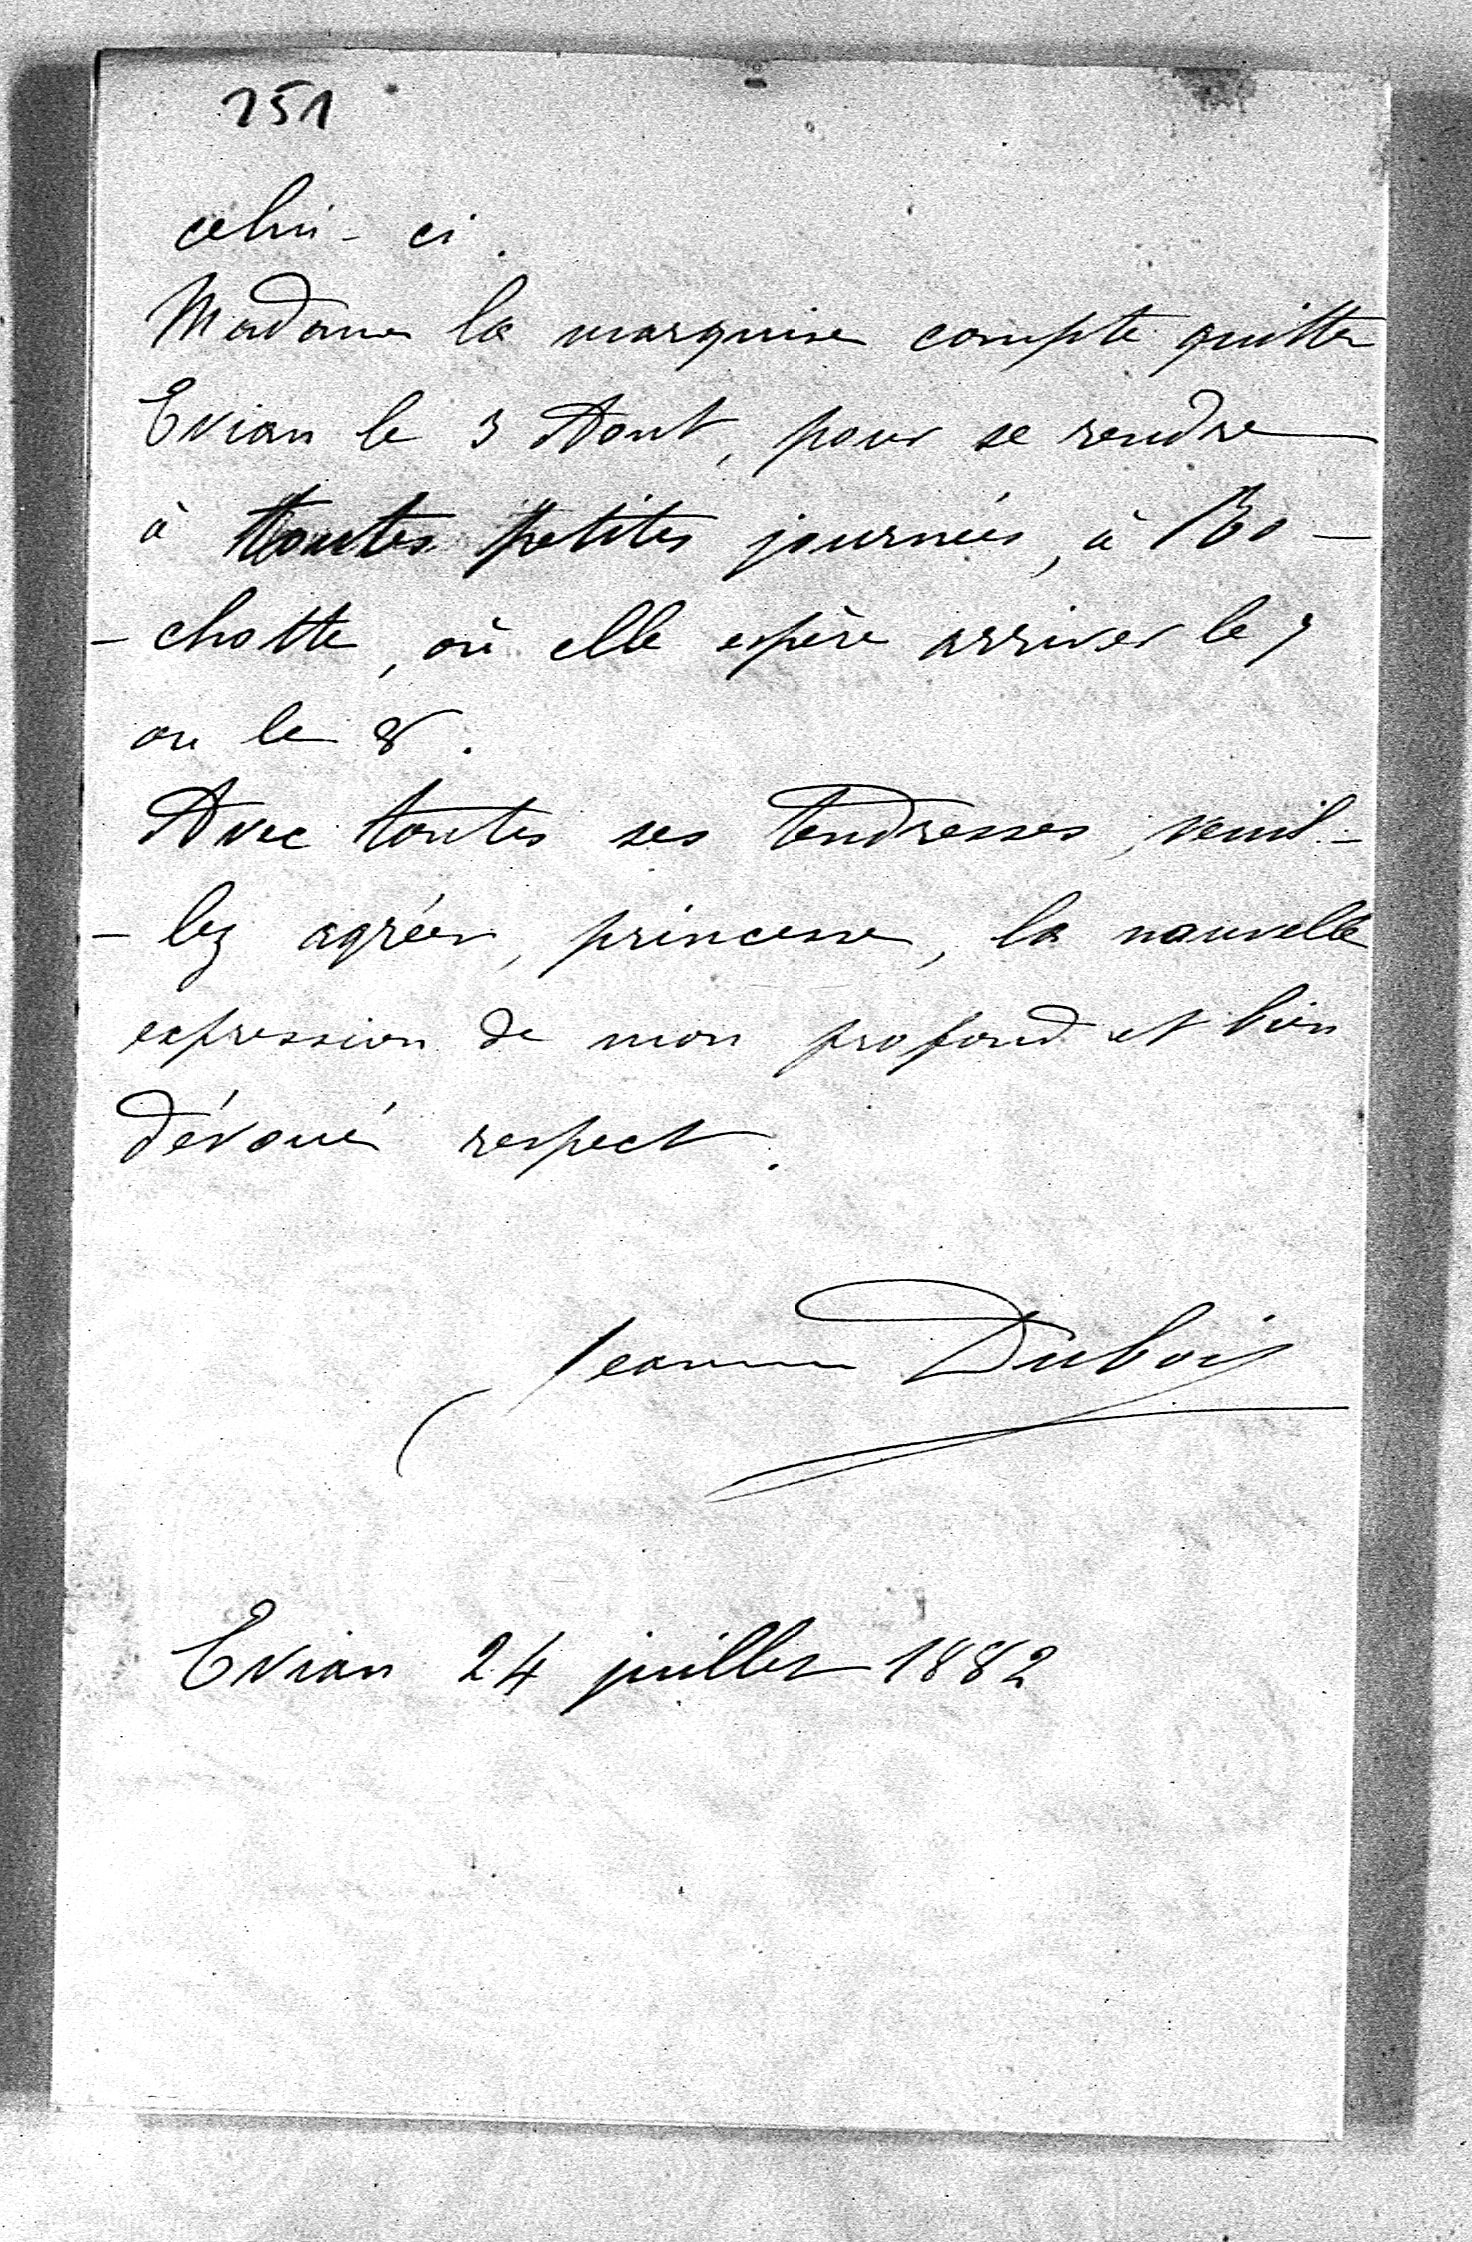 251
celui-ci.
Madame la marquise compte quitter
Evian le 3 Aout, pour se rendre
à toutes petites journées, à Ro-
-chotte, où elle espère arriver le 7
ou le 8.
Avec toutes ses tendresses, veuil-
-lez agréer, princesse, la nouvelle
expression de mon profond et bien
dévoué respect.
Jeanne Dubois
Evian 24 juillet 1882